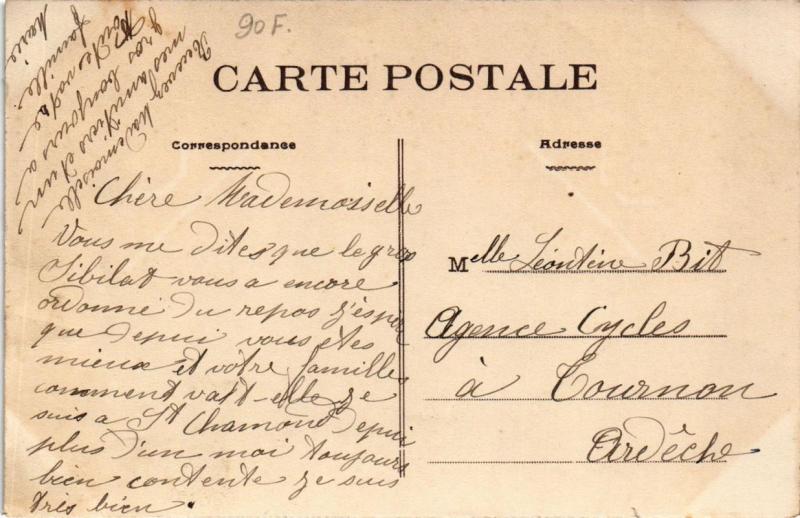 90F.
CARTE POSTALE
Correspondance
Adresse
Chère Mademoiselle
Vous me dites que le gros
Sibilat vous a encore
ordonné du repos j'éspér
que depui vous êtes
mieux et votre famille
comment vat-elle je
suis a St Chamond depui
plus d'un moi toujours
bien contente je suis
très bien.
Recevez Mademoiselle
mes amitiers et un
gros bonjours a
toute votre
famille
Marie
Melle Léontine Bit
Agence Cycles
à Tournon
Ardêche